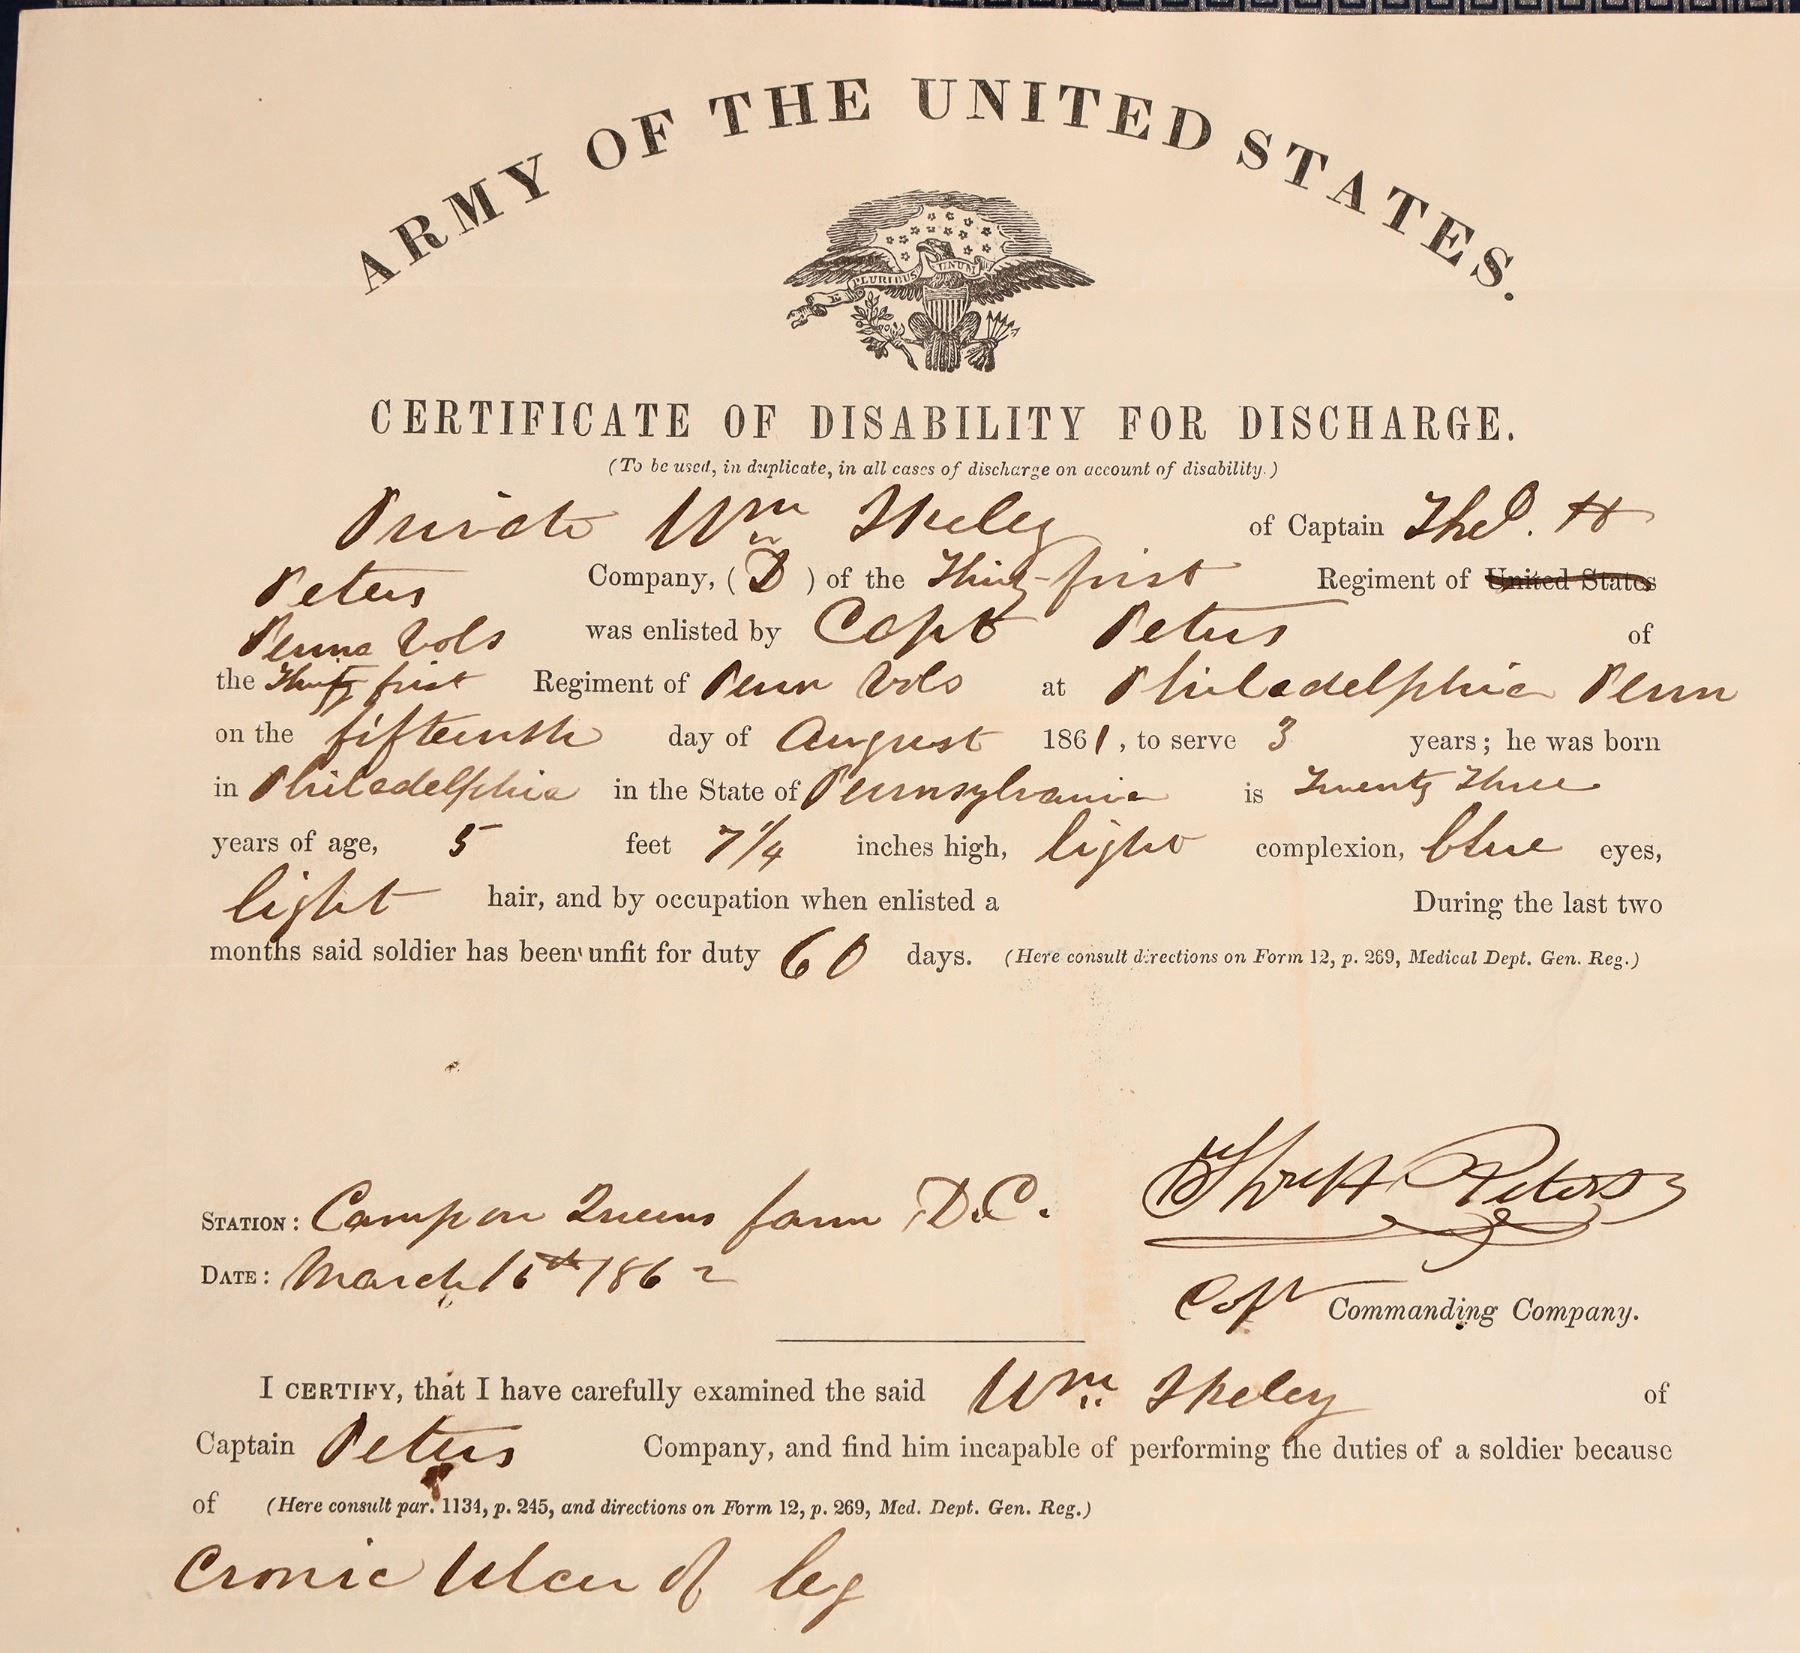 ARMY OF THE UNITED STATES.
E PLURIBUS UNUM
CERTIFICATE OF DISABILITY FOR DISCHARGE.
(To be used, in duplicate, in all cases of discharge on account of disability.)
Private Wm Skeley of Captain Theo. H
Peters Company, (D) of the Thirty-first Regiment of United States
Penna Vols was enlisted by Capt Peters of
the Thirty first Regiment of Penn Vols at Philadelphia Penn
on the fifteenth day of August 1861, to serve 3 years; he was born
in Philadelphia in the State of Pennsylvania is Twenty Three
years of age, 5 feet 7 1/4 inches high, light complexion, blue eyes,
light hair, and by occupation when enlisted a During the last two
months said soldier has been unfit for duty 60 days. (Here consult directions on Form 12, p. 269, Medical Dept. Gen. Reg.)
STATION: Camp on Queens farm D.C. H Peters
DATE: March 15th 1862
Capt Commanding Company.
I CERTIFY, that I have carefully examined the said Wm Skeley of
Captain Peters Company, and find him incapable of performing the duties of a soldier because
of (Here consult par. 1134, p. 245, and directions on Form 12, p. 269, Med. Dept. Gen. Reg.)
Cronic Ulcer of leg